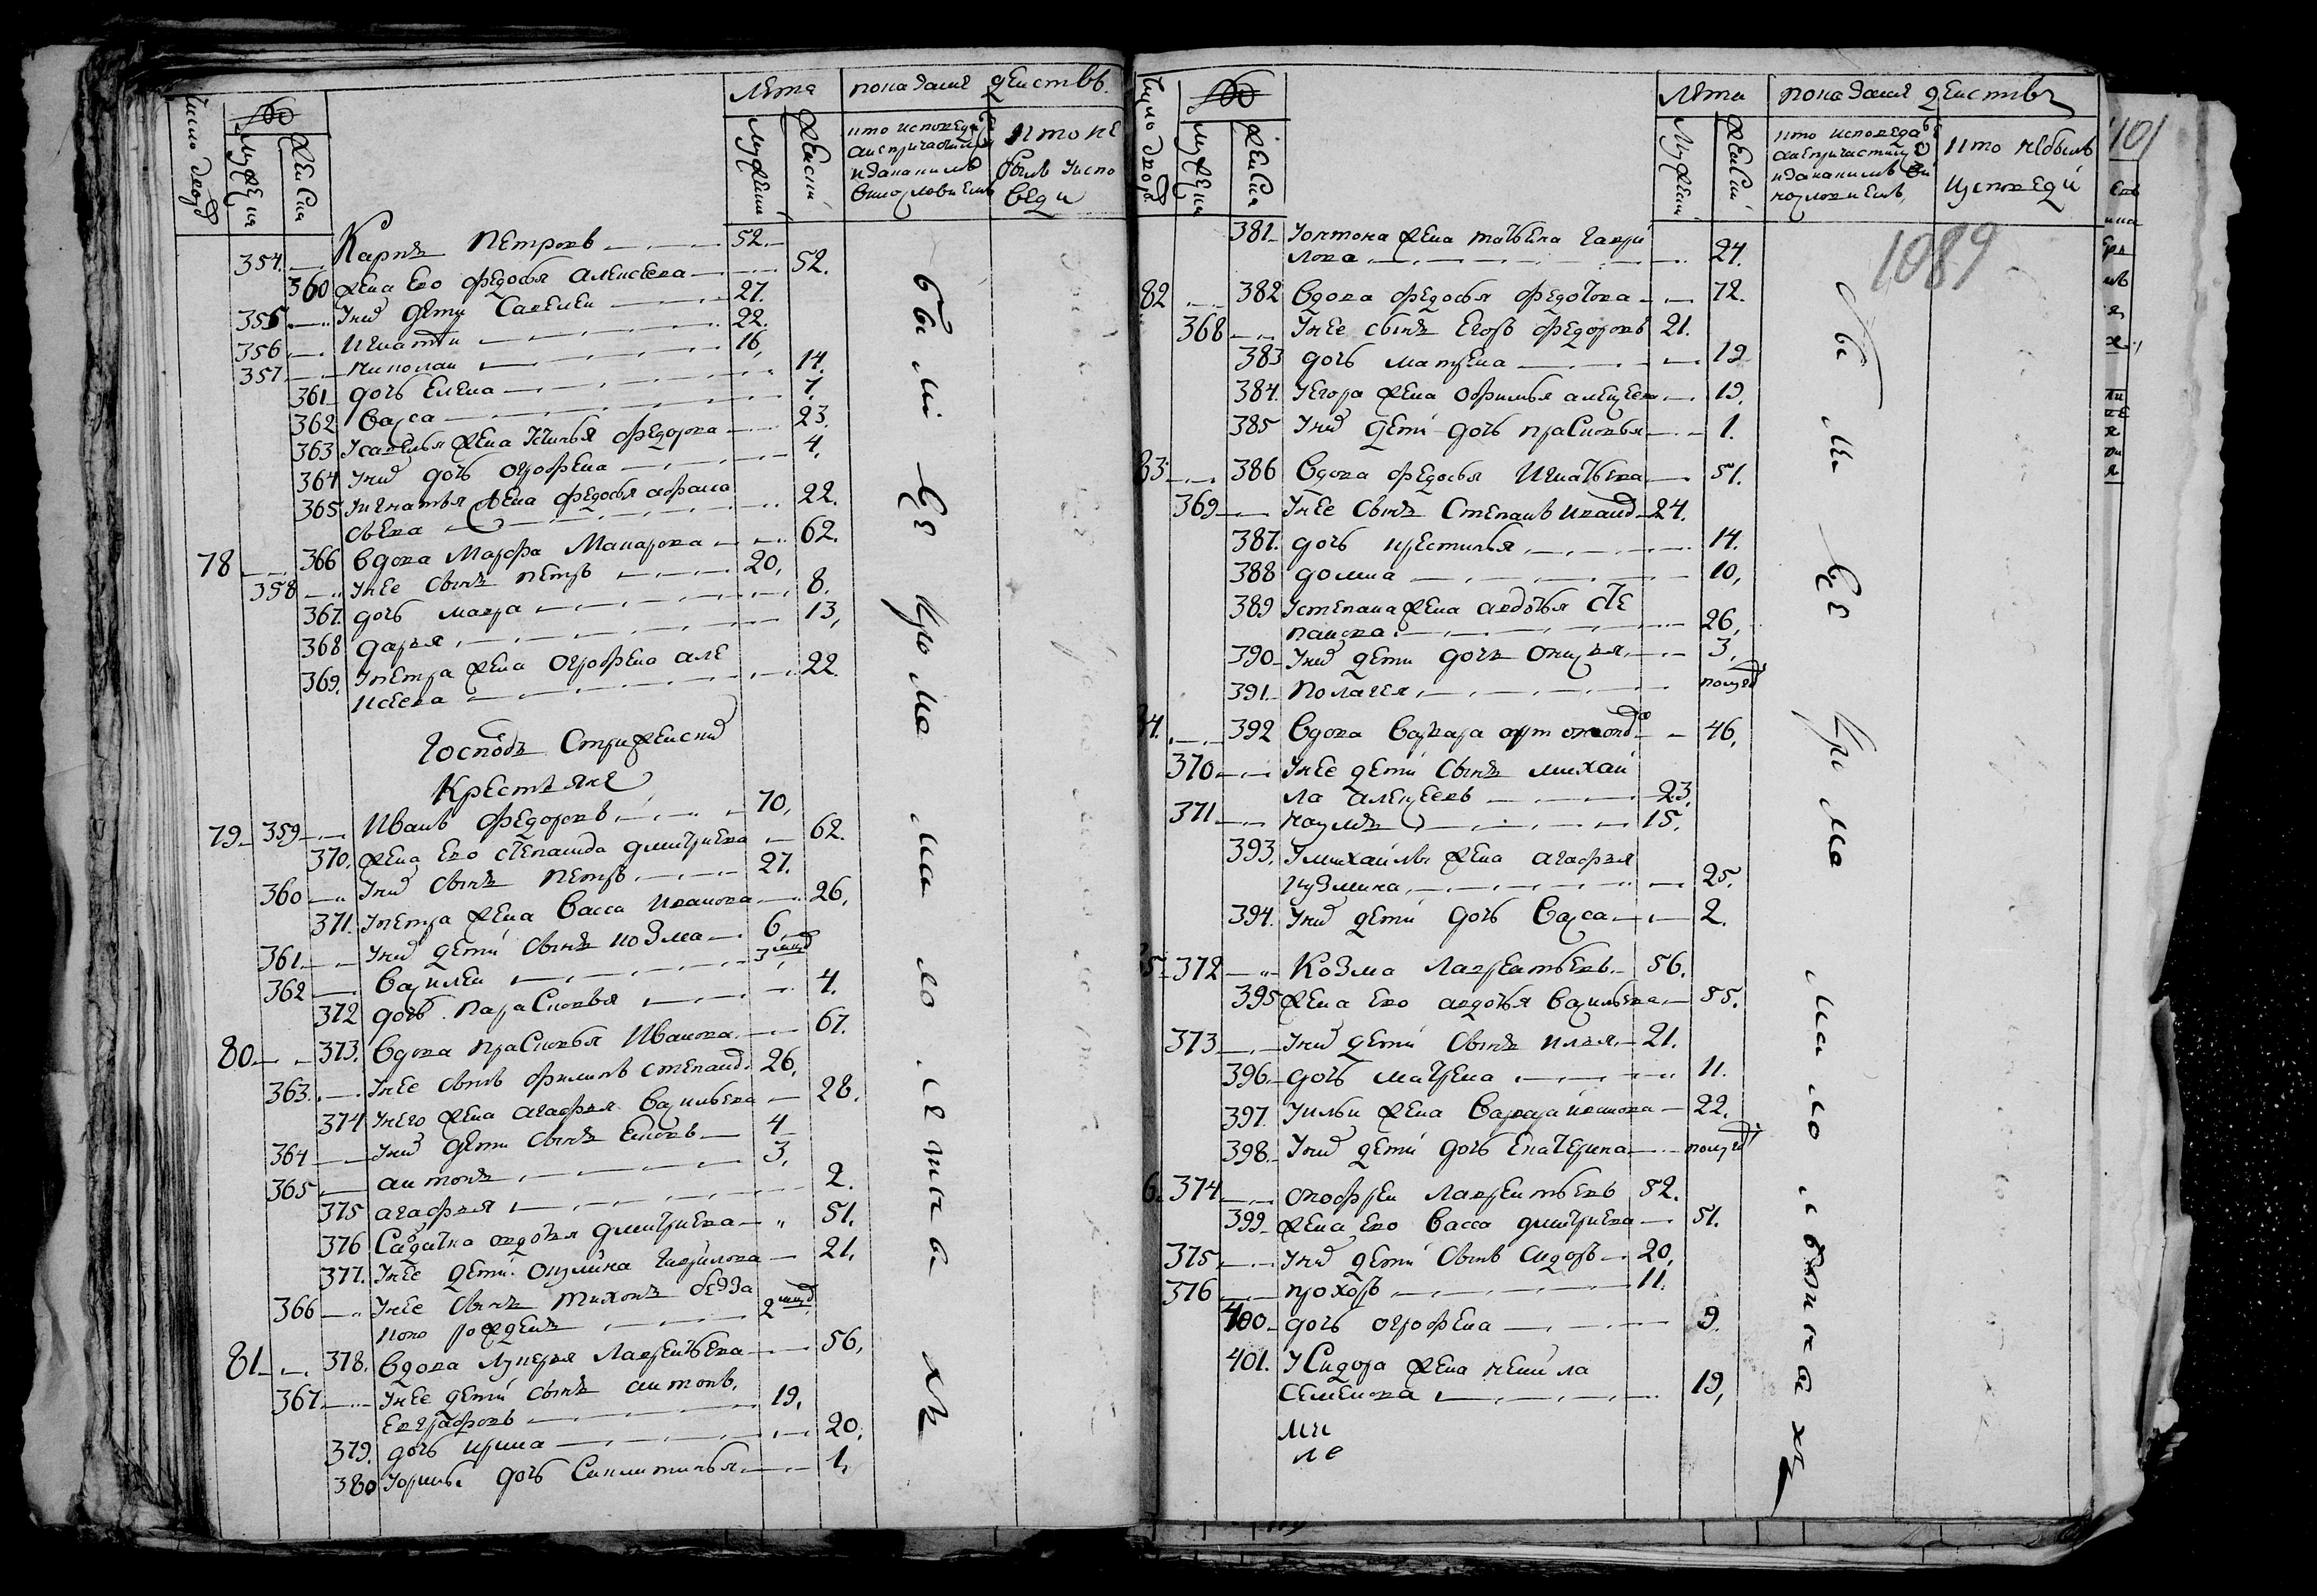 число дворовъ
мужеска
женска
лѣта
мужеска
женска
показание действъ.
кто исповеда
лися и причастились
и да каким
винословием
кто не
былъ у испо
веди
354 Карпъ Петровъ 52.
360 жена ево Федосья Алексеева 52.
355 У них дети Савелеи 27.
356 Игнатеи 22.
357 Николаи 16,
361 дочь Елена 14.
362 Васса 7,
363 У Савелья жена Федорова 23.
364 У них дочь Огрофена 4,
365 У Игнатья жена Федосья Афана
сьева 22.
78 366 вдова Марфа Макарова 62.
358 У нее сынъ Петръ 20,
367. дочь Мавра 8.
368 Дарья 13,
369. У Петра жена Огрофена Але
ксеева 22.
Господъ Стрижевских
Крестьяне
79 359 Иванъ Федоровъ 70,
370. жена ево Степанида Дмитриева 62.
360 У них сынъ Петръ 27.
371. У Петра жена Васса Иванова 26,
361 У них дети сынъ Козма 6
362 Василеи 3
372 дочь Парасковья 4.
80 373. вдова Прасковья Иванова 67.
363. У нее сынъ Филипъ Степанов. 26,
374 У него жена Агафья Васильева 28.
364 У них дети сынъ 4
365 Антонъ 3,
375 Агафья 2.
376 Салдатка Авдотья Дмитриева 51.
377. У нее дети Гаврилова 21,
366 У нее сынъ Тихонъ безза
конно рожденъ 2
81 378. вдова Лукерья Лаврентьева 56,
367 У нее дети сынъ Антонъ
Евграфовъ 19,
379. дочь Ирина 20,
380 дочь 1,
бы
ли
все
кро
ма
ма
ло
ле
тны
хъ
число дворовъ
мужеска
женска
лѣта
мужеска
женска
показание действъ
кто исповеда
лися и причастились
и да каким ви
нословиемъ
кто не былъ
у исповеди
101
1089
381 У Онтона жена Татьяна Гаври
лова 24.
82 382 вдова Федосья Федотова 72.
368 У нее сынъ Егоръ Федоровъ 21.
383 дочь Матрена 12
384. У Егора жена Офимья Алексеева 19,
385 У них дети дочь Прасковья 1.
83 386 вдова Федосья Игнатьева 51.
369 У нее сынъ Степанъ Иванов 24.
387. дочь Крестинья 14.
388 Домна 10,
389 У Степана жена Авдотья Сте
панова 26,
390 У них дети дочь 3,
391 Полагея полгод
84. 392 вдова Варвара 46,
370 У нее дети сынъ Михаи
ла Алексеевъ 23.
371 Наумъ 15.
393. У Михаилы жена Агафья
Кузмина 25.
394. У них дети дочь Васса 2.
85 372 Козма Лаврентьевъ 56.
395 жена ево Авдотья Васильева 55.
373 У них дети сынъ Илья 21.
396 дочь Матрена 11.
397. У Ильи жена Варвара Иванова 22.
398. У них дети дочь Екатерина полгод
86 374 Онофреи Лаврентьевъ 52.
399 жена ево Васса Дмитриева 51.
375 У них дети сынъ Сидоръ 20,
376 Прохоръ 11.
400 дочь Огрофена 9.
401. У Сидора жена Ненила
Семенова 19,
ми
ле
бы
ли
все
кро
ма
ма
ло
хъ